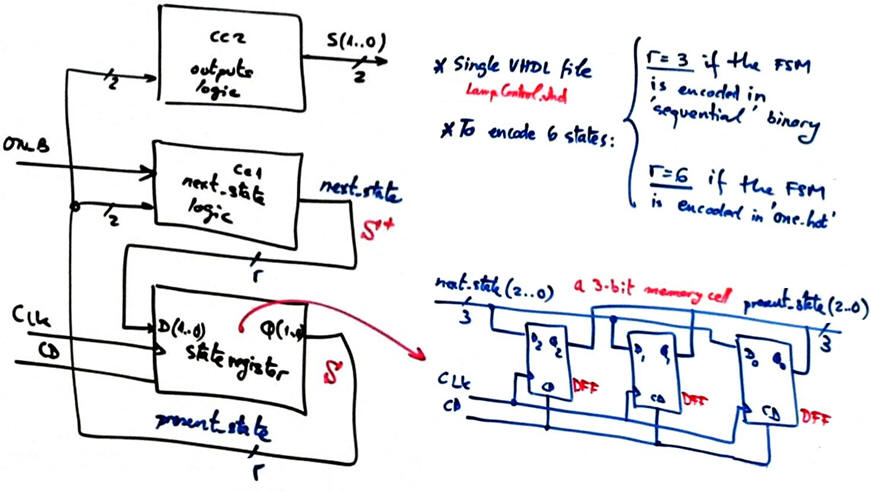 CC2
outputs
logic
S(1..0)
2
2
On_B
CC1
next_state
logic
2
next_state
S*
r
CLK
CD
D(1..0)
Q(1..0)
state register
S
present_state
r
* Single VHDL file
Lamp_Control.vhd
* To encode 6 states:
r=3 if the FSM
is encoded in
'sequential' binary
r=6 if the FSM
is encoded in 'one-hot'
next_state(2..0)
a 3-bit memory cell
present_state(2..0)
3
3
D2 Q2
D1 Q1
D0 Q0
CLK
CD
CD
DFF
CD
DFF
CD
DFF